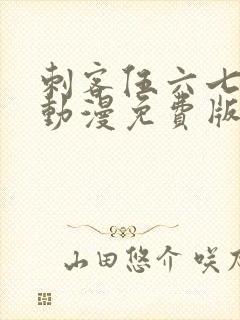 刺客伍六七
動漫免費版
山田悠介 咲